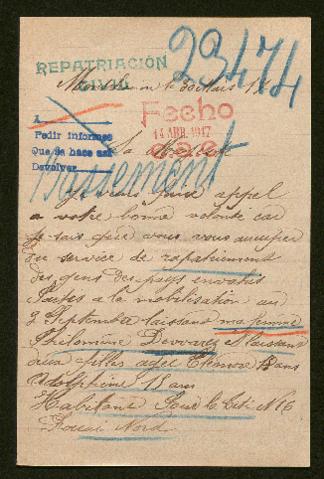 REPATRIACIÓN
CIVIL
23474
le 30 Mars
A
Fecho
14 ABR. 1917
Pedir informes
Que se hace así
Devolver
Sa Majesté
Je viens faire appel
a votre bonne volonté car
je sais que vous vous occupier
du service de rapatriement
des gens des pays envahis
Parties a la mobilisation au
2 Septembre laissant ma femme
Philomène Devvarez
deux filles agée Eleonore ans
Adolphine 18 ans
Habitant Cité N 16
Douai Nord